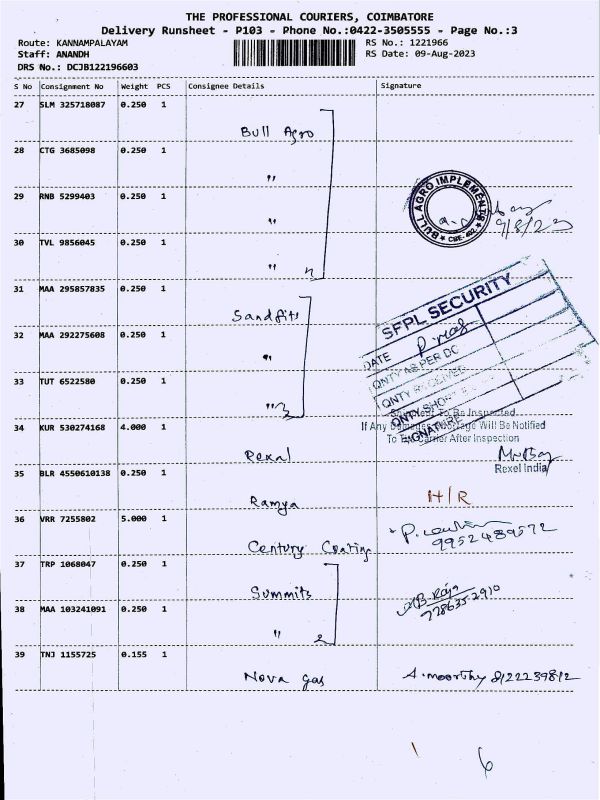 THE PROFESSIONAL COURIERS, COIMBATORE
Delivery Runsheet - P103 - Phone No.:0422-3505555 - Page No.:3
Route: KANNAMPALAYAM RS No.: 1221966
Staff: ANANDH RS Date: 09-Aug-2023
DRS No.: DCJB122196603
S No Consignment No Weight PCS Consignee Details Signature
27 SLM 325718087 0.250 1
Bull Agro
28 CTG 3685098 0.250 1
"
29 RNB 5299403 0.250 1
BULL AGRO IMPLEMENTS
CBE-402
"
9/8/23
30 TVL 9856045 0.250 1
"
31 MAA 295857835 0.250 1
Sandfits
SFPL SECURITY
32 MAA 292275608 0.250 1
DATE
"
QNTY AS PER DC
33 TUT 6522580 0.250 1
QNTY RECEIVED
" 3
QNTY SHORT
SIGNATURE
34 KUR 530274168 4.000 1
To Be Inspected
If Any Will Be Notified
To The Carrier After Inspection
Rexal
Rexel India
35 BLR 4550610138 0.250 1
Ramya
H/R
36 VRR 7255802 5.000 1
Century Coating
9952489572
37 TRP 1068047 0.250 1
Summits
B. Raja
38 MAA 103241091 0.250 1
7786352910
" 2
39 TNJ 1155725 0.155 1
Nova gas
A. moorthy 8122239812
6